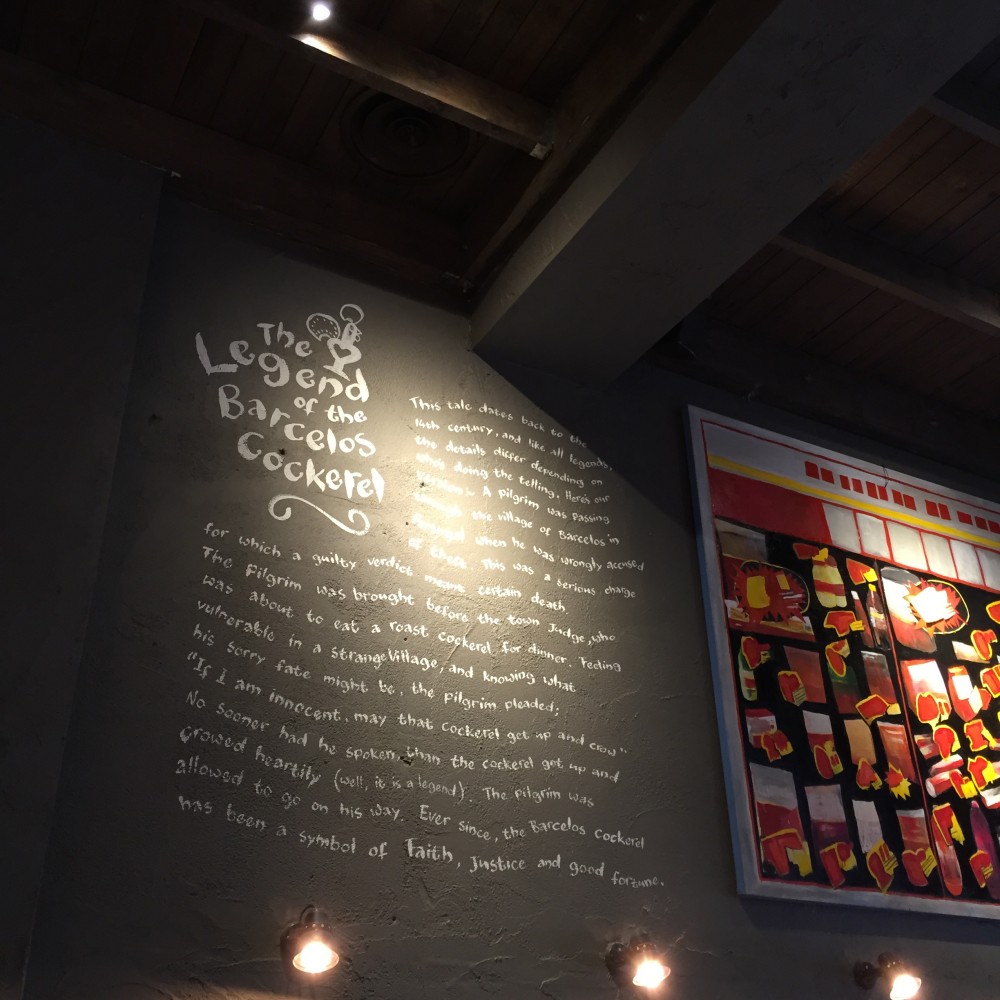 The
Legend
of the
Barcelos
Cockerel
This tale dates back to the
14th century, and like all legends,
the details differ depending on
who's doing the telling. Here's our
version:- A Pilgrim was passing
through the village of Barcelos in
Portugal when he was wrongly accused
of theft. This was a serious charge
for which a guilty verdict meant certain death.
The Pilgrim was brought before the town Judge, who
was about to eat a roast cockerel for dinner. Feeling
vulnerable in a strange Village, and knowing what
his sorry fate might be, the pilgrim pleaded;
"If I am innocent, may that cockerel get up and crow"
No sooner had he spoken, than the cockerel got up and
crowed heartily (well, it is a legend). The pilgrim was
allowed to go on his way. Ever since, the Barcelos cockerel
has been a symbol of Faith, Justice and good fortune.